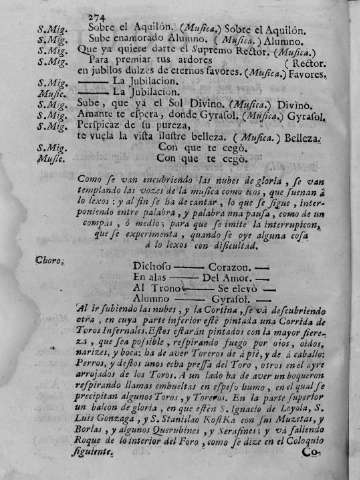 274
S.Mig. Sobre el Aquilòn. (Musica.) Sobre el Aquilòn.
S.Mig. Sube enamorado Alumno. (Musica.) Alumno.
S.Mig. Que ya quiere darte el Supremo Rector. (Musica.)
S.Mig. Para premiar tus ardores ( Rector.
en jubilos dulzes de eternos favores. (Musica.) Favores.
S.Mig. —— La Jubilacion.
Music. —— La Jubilacion.
S.Mig. Sube, que yà el Sol Divino. (Musica.) Divino.
S.Mig. Amante te espera, donde Gyrasol. (Musica.) Gyrasol.
S.Mig. Perspicaz de su pureza,
te vuela la vista ilustre belleza. (Musica.) Belleza.
S.Mig. Con que te cegò.
Music. Con que te cegò.
Como se van encubriendo las nubes de gloria, se van
templando las vozes de la musica como ecos, que suenan à
lo lexos: y al fin se ha de cantar, lo que se sigue, inter-
poniendo entre palabra, y palabra una pausa, como de un
compas, ò medio, para que se imite la interrupcion,
que se experimenta, quando se oye alguna cosa
à lo lexos con dificultad.
Choro, Dichoso —— Corazon. ——
En alas —— Del Amor. ——
Al Trono —— Se elevò ——
Alumno —— Gyrasol. ——
Al ir subiendo las nubes, y la Cortina, se và descubriendo
otra, en cuya parte inferior estè pintada una Corrida de
Toros Infernales. Estos estaràn pintados con la mayor fiere-
za, que sea possible, respirando fuego por ojos, oidos,
narizes, y boca: ha de aver Toreros de à piè, y de à caballo:
Perros, y destos unos echa pressa del Toro, otros en el ayre
arrojados de los Toros. A un lado ha de aver un boqueron
respirando llamas embueltas en espeso humo, en el qual se
precipitan algunos Toros, y Toreros. En la parte superior
un balcon de gloria, en que estèn S. Ignacio de Loyola, S.
Luis Gonzaga, y S. Stanilao Kostka con sus Muzetas, y
Borlas, y algunos Querubines, y Serafines: y và saliendo
Roque de lo interior del Foro, como se dize en el Coloquio
siguiente. Co-